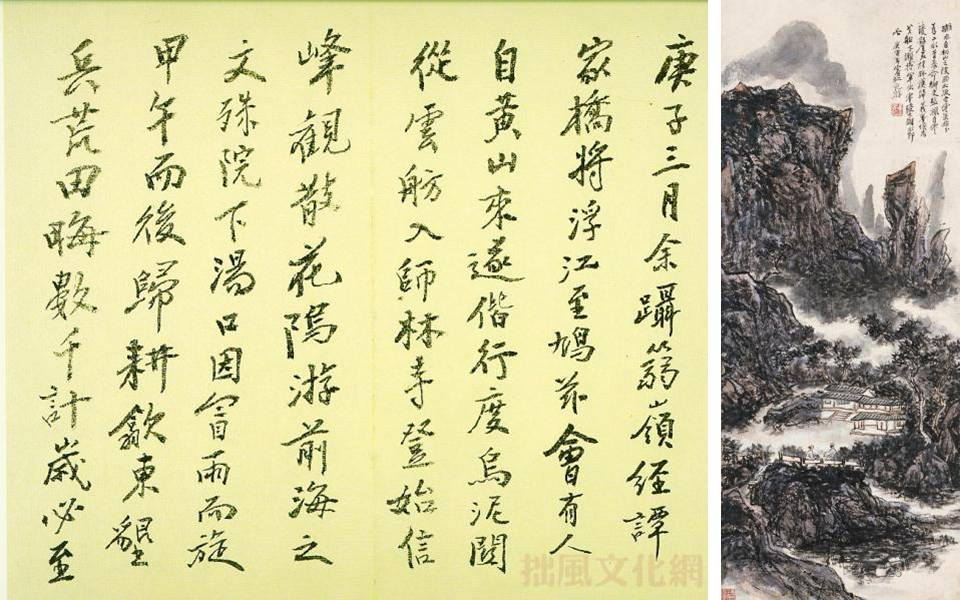 庚子三月余躡篛嶺經譚
家橋將浮江至鳩茲會有人
自黃山來遂偕行度烏泥關
從雲舫入師林寺登始信
峰觀散花隖游前海之
文殊院下湯口因冒雨而旋
甲午而後歸耕歙東墾
兵荒田晦數千計歲必至
拙風文化網